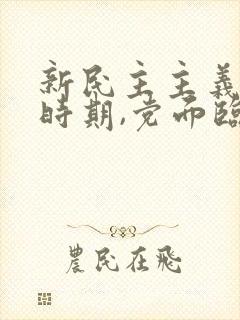 新民主主義
時期,党面臨
農民在飛